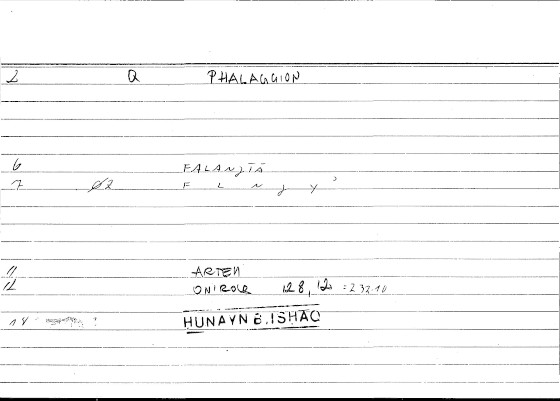 2 Q PHALAGGION
6 FALANJĪĀ
7 Ø2 F L N J Y ʾ
11 ARTEM
12 ONIROCR 128, 12 = 232.10
14 HUNAYN B. ISHAQ